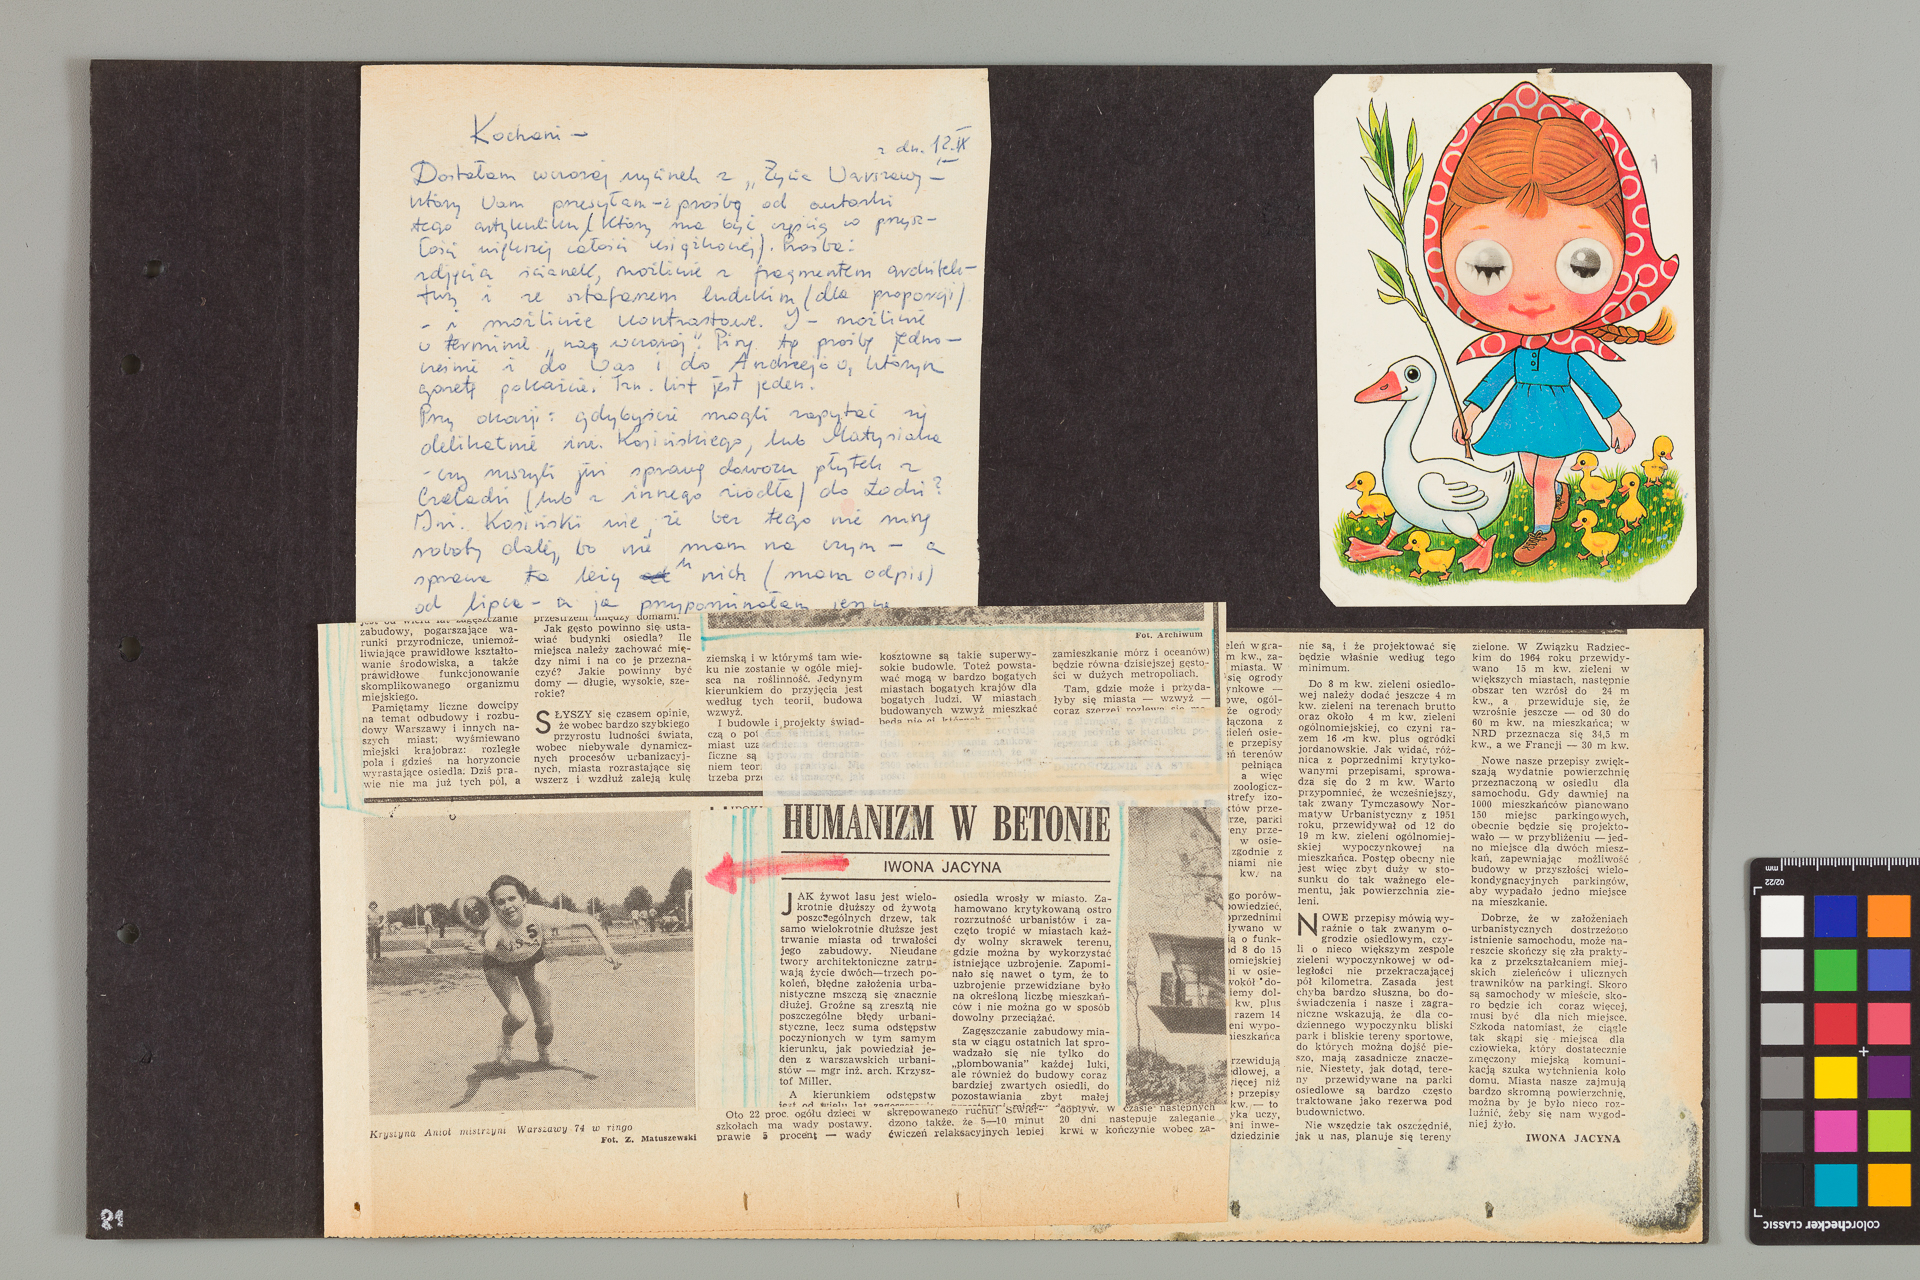 Kochani –
z dn. 12.IX
Dostałam wczoraj wycinek z „Życia Warszawy –
który Wam przesyłam – z prośbą od autorki
tego artykuliku (który ma być częścią w przysz-
łości większej całości książkowej). Prośba:
zdjęcia ścianek, możliwie z fragmentem architek-
tury i ze sztafażem ludzkim (dla proporcji)
– i możliwie kontrastowe. I – możliwie
w terminie „na wczoraj". Piszę tę prośbę jedno-
cześnie i do Was i do Andrzejów, którym
gazetę pokażcie. Tzn. list jest jeden.
Przy okazji: gdybyście mogli zapytać się
delikatnie inż. Kosińskiego, lub Matysiaka
– czy ruszyli już sprawę dowozu płytek z
Czeladzi (lub z innego źródła) do Łodzi?
Inż. Kosiński wie, że bez tego nie ruszę
roboty dalej, bo nie mam na czym – a
sprawa ta leży u nich (mam odpis)
od lipca – a ja przypominałam jeszcze
jest od wielu lat zagęszczanie
zabudowy, pogarszające wa-
runki przyrodnicze, uniemoż-
liwiające prawidłowe kształto-
wanie środowiska, a także
prawidłowe funkcjonowanie
skomplikowanego organizmu
miejskiego.
Pamiętamy liczne dowcipy
na temat odbudowy i rozbu-
dowy Warszawy i innych na-
szych miast; wyśmiewano
miejski krajobraz: rozległe
pola i gdzieś na horyzoncie
wyrastające osiedla. Dziś pra-
wie nie ma już tych pól, a
przestrzeni między domami.
Jak gęsto powinno się usta-
wiać budynki osiedla? Ile
miejsca należy zachować mię-
dzy nimi i na co je przezna-
czyć? Jakie powinny być
domy — długie, wysokie, sze-
rokie?
SŁYSZY się czasem opinie,
że wobec bardzo szybkiego
przyrostu ludności świata,
wobec niebywale dynamicz-
nych procesów urbanizacyj-
nych, miasta rozrastające się
wszerz i wzdłuż zaleją kulę
Fot. Archiwum
ziemską i w którymś tam wie-
ku nie zostanie w ogóle miej-
sca na roślinność. Jedynym
kierunkiem do przyjęcia jest
według tych teorii, budowa
wzwyż.
I budowle i projekty świad-
czą o pot
miast uza
ficzne są
niem teor
trzeba prze
kosztowne są takie superwy-
sokie budowle. Toteż powsta-
wać mogą w bardzo bogatych
miastach bogatych krajów dla
bogatych ludzi. W miastach
budowanych wzwyż mieszkać
zamieszkanie mórz i oceanów)
będzie równa dzisiejszej gęsto-
ści w dużych metropoliach.
Tam, gdzie może i przyda-
łyby się miasta — wzwyż —
coraz szerzej rozlewa się ma-
Krystyna Anioł mistrzyni Warszawy 74 w ringo
Fot. Z. Matuszewski
HUMANIZM W BETONIE
IWONA JACYNA
JAK żywot lasu jest wielo-
krotnie dłuższy od żywota
poszczególnych drzew, tak
samo wielokrotnie dłuższe jest
trwanie miasta od trwałości
jego zabudowy. Nieudane
twory architektoniczne zatru-
wają życie dwóch—trzech po-
koleń, błędne założenia urba-
nistyczne mszczą się znacznie
dłużej. Groźne są zresztą nie
poszczególne błędy urbani-
styczne, lecz suma odstępstw
poczynionych w tym samym
kierunku, jak powiedział je-
den z warszawskich urbani-
stów — mgr inż. arch. Krzysz-
tof Miller.
A kierunkiem odstępstw
jest od wielu lat zagęszczanie
osiedla wrosły w miasto. Za-
hamowano krytykowaną ostro
rozrzutność urbanistów i za-
częto tropić w miastach każ-
dy wolny skrawek terenu,
gdzie można by wykorzystać
istniejące uzbrojenie. Zapomi-
nało się nawet o tym, że to
uzbrojenie przewidziane było
na określoną liczbę mieszkań-
ców i nie można go w sposób
dowolny przeciążać.
Zagęszczanie zabudowy mia-
sta w ciągu ostatnich lat spro-
wadzało się nie tylko do
„plombowania" każdej luki,
ale również do budowy coraz
bardziej zwartych osiedli, do
pozostawiania zbyt małej
Oto 22 proc. ogółu dzieci w
szkołach ma wady postawy.
prawie 5 procent — wady
skrępowanego ruchu! Stwier-
dzono także, że 5—10 minut
ćwiczeń relaksacyjnych lepiej
dopływ. w czasie następnych
20 dni następuje zaleganie
krwi w kończynie wobec za-
eleń w gra-
m kw., za-
miasta. W
się ogrody
ynkowe —
owe, ogól-
że ogrody
łączona z
zieleń osie-
e przepisy
eń terenów
pełniąca
a więc
zoologicz-
strefy izo-
któw prze-
rze, parki
eny prze-
w osie-
zgodnie z
niami nie
kw. na
go porów-
owiedzieć,
oprzednimi
dywano w
ą o funk-
od 8 do 15
omiejskiej
i w osie-
wokół do-
iemy dol-
kw. plus
razem 14
eni wypo-
mieszkańca
rzewidują
dlowej, a
ięcej niż
przepisy
kw. — to
yka uczy,
ani inwe-
dziedzinie
nie są, i że projektować się
będzie właśnie według tego
minimum.
Do 8 m kw. zieleni osiedlo-
wej należy dodać jeszcze 4 m
kw. zieleni na terenach brutto
oraz około 4 m kw. zieleni
ogólnomiejskiej, co czyni ra-
zem 16 m kw. plus ogródki
jordanowskie. Jak widać, róż-
nica z poprzednimi krytyko-
wanymi przepisami, sprowa-
dza się do 2 m kw. Warto
przypomnieć, że wcześniejszy,
tak zwany Tymczasowy Nor-
matyw Urbanistyczny z 1951
roku, przewidywał od 12 do
19 m kw. zieleni ogólnomiej-
skiej wypoczynkowej na
mieszkańca. Postęp obecny nie
jest więc zbyt duży w sto-
sunku do tak ważnego ele-
mentu, jak powierzchnia zie-
leni.
NOWE przepisy mówią wy-
raźnie o tak zwanym o-
grodzie osiedlowym, czy-
li o nieco większym zespole
zieleni wypoczynkowej w od-
ległości nie przekraczającej
pół kilometra. Zasada jest
chyba bardzo słuszna, bo do-
świadczenia i nasze i zagra-
niczne wskazują, że dla co-
dziennego wypoczynku bliski
park i bliskie tereny sportowe,
do których można dojść pie-
szo, mają zasadnicze znacze-
nie. Niestety, jak dotąd, tere-
ny przewidywane na parki
osiedlowe są bardzo często
traktowane jako rezerwa pod
budownictwo.
Nie wszędzie tak oszczędnie,
jak u nas, planuje się tereny
zielone. W Związku Radziec-
kim do 1964 roku przewidy-
wano 15 m kw. zieleni w
większych miastach, następnie
obszar ten wzrósł do 24 m
kw., a przewiduje się, że
wzrośnie jeszcze — od 30 do
60 m kw. na mieszkańca; w
NRD przeznacza się 34,5 m
kw., a we Francji — 30 m kw.
Nowe nasze przepisy zwięk-
szają wydatnie powierzchnię
przeznaczoną w osiedlu dla
samochodu. Gdy dawniej na
1000 mieszkańców planowano
150 miejsc parkingowych,
obecnie będzie się projekto-
wało — w przybliżeniu — jed-
no miejsce dla dwóch miesz-
kań, zapewniając możliwość
budowy w przyszłości wielo-
kondygnacyjnych parkingów,
aby wypadało jedno miejsce
na mieszkanie.
Dobrze, że w założeniach
urbanistycznych dostrzeżono
istnienie samochodu, może na-
reszcie skończy się zła prakty-
ka z przekształcaniem miej-
skich zieleńców i ulicznych
trawników na parkingi. Skoro
są samochody w mieście, sko-
ro będzie ich coraz więcej,
musi być dla nich miejsce.
Szkoda natomiast, że ciągle
tak skąpi się miejsca dla
człowieka, który dostatecznie
zmęczony miejską komuni-
kacją szuka wytchnienia koło
domu. Miasta nasze zajmują
bardzo skromną powierzchnię,
można by je było nieco roz-
luźnić, żeby się nam wygod-
niej żyło.
IWONA JACYNA
81
mm
02/22
colorchecker CLASSIC